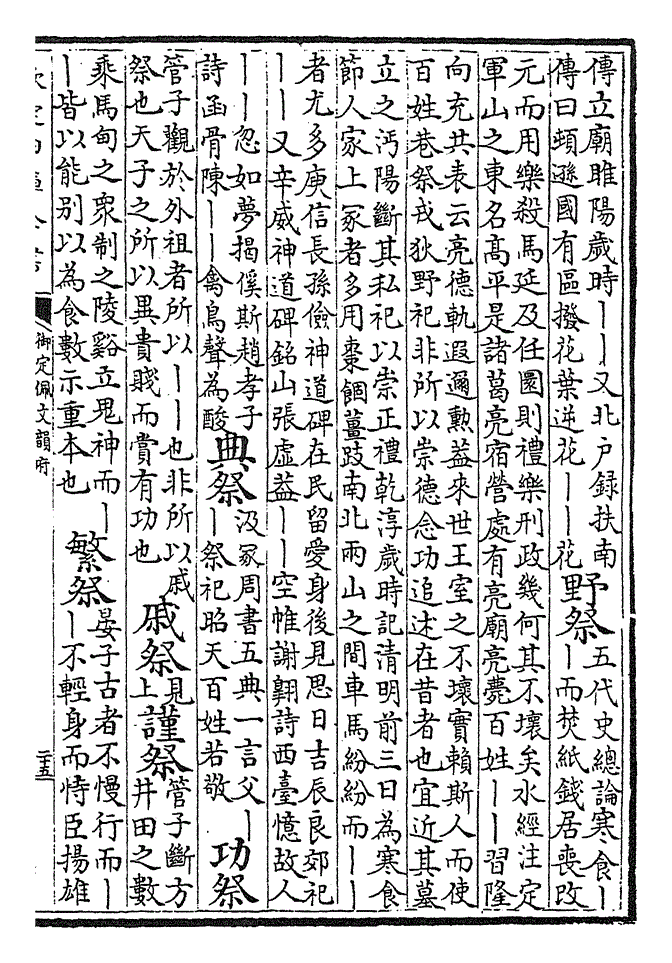 傳立廟睢陽歲時——又北戶録扶南
傳曰頓遜國有區撥花葉逆花——花
野祭
五代史總論寒食—
—而焚紙錢居喪改
元而用樂殺馬延及任圜則禮樂刑政幾何其不壞矣水經注定
軍山之東名高平是諸葛亮宿營處有亮廟亮薨百姓——習隆
向充共表云亮德軌遐邇勲葢來世王室之不壞實賴斯人而使
百姓巷祭戎狄野祀非所以崇德念功追述在昔者也宜近其墓
立之沔陽斷其私祀以崇正禮乾淳歲時記清明前三日為寒食
節人家上冢者多用棗䭅薑豉南北兩山之間車馬紛紛而——
者尤多庾信長孫儉神道碑在民留愛身後見思日吉辰良郊祀
——又辛威神道碑銘山張虚葢——空帷謝翺詩西臺憶故人
——忽如夢揭傒斯趙孝子
詩函骨陳——禽鳥聲為酸
典祭
汲冢周書五典一言父—
—祭祀昭天百姓若敬
功祭
管子觀於外祖者所以——也非所以戚
祭也天子之所以異貴賤而賞有功也
戚祭
見
上
謹祭
管子斷方
井田之數
乘馬甸之衆制之陵谿立鬼神而—
—皆以能别以為食數示重本也
繁祭
晏子古者不慢行而—
—不輕身而恃臣揚雄
御定佩文韻府
二十五